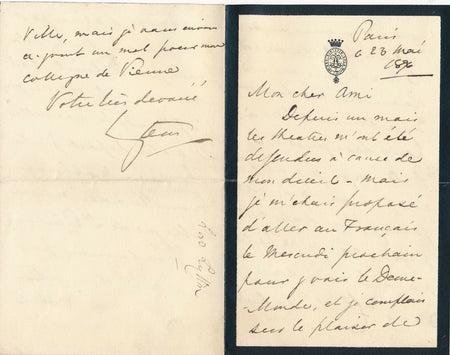 Paris
23 Mai
Mon cher Ami
Depuis un mois
les theatres m'ont été
defendus à cause de
mon deuil - mais
je m'étais proposé
d'aller au Français
le Mercredi prochain
pour y voir le Demi-
Monde, et je comptais
sur le plaisir de
ville, mais je vous envoie
ci-joint un mot pour mon
collegue de Vienne
Votre très devoué
Lytton